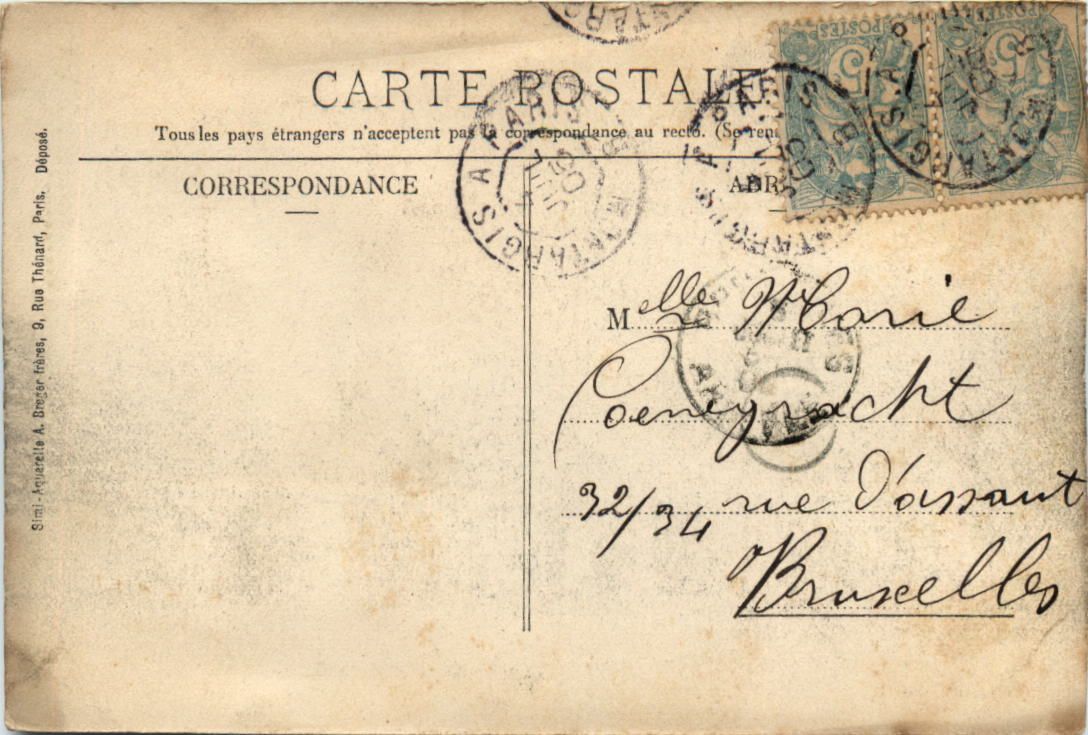 CARTE POSTALE
Tous les pays étrangers n'acceptent pas la correspondance au recto. (Se ren
CORRESPONDANCE
ADR
Melle Marie
Coeneyracht
32/34 rue d'assaut
Bruxelles
Simi-Aquarelle A. Breger frères, 9, Rue Thénard, Paris. Déposé.
MONTARGIS A PARIS
MONTARGIS A PARIS
MONTARGIS
POSTES
5
POSTES
5